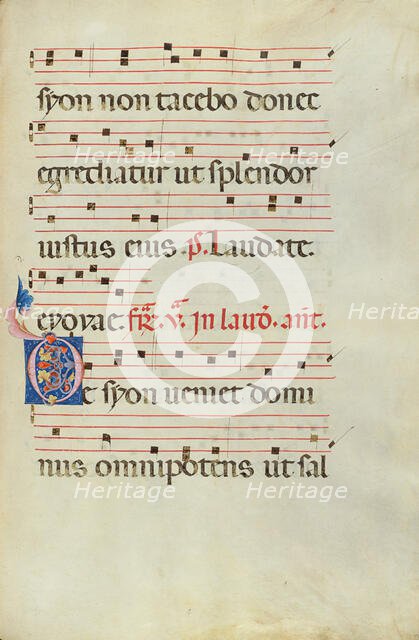 syon non tacebo donec
egrediatur ut splendor
iustus eius. ps. Laudate.
evovae. fr̄. v̄. In laud̄. ant̄.
De syon veniet domi
nus omnipotens ut sal
Heritage
Heritage
Heritage
Heritage
Heritage
Heritage
Heritage